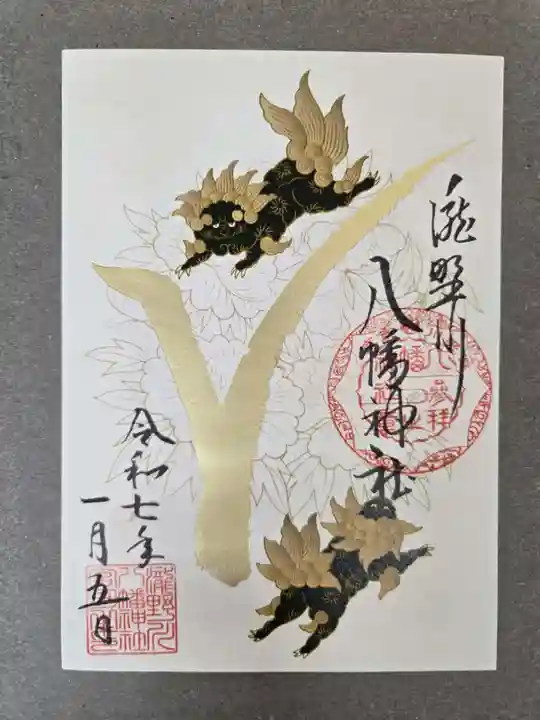 瀧野川
八幡神社
参拝
令和七年
一月五日
瀧野川
八幡神社